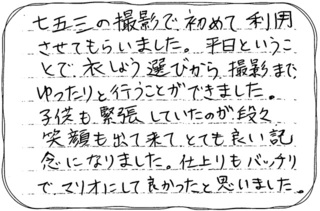 七五三の撮影で初めて利用
させてもらいました。平日というこ
とで、衣しょう選びから、撮影まで
ゆったりと行うことができました。
子供も緊張していたのが段々
笑顔も出て来て、とても良い記
念になりました。仕上りもバッチリ
で、マリオにして良かったと思いました。